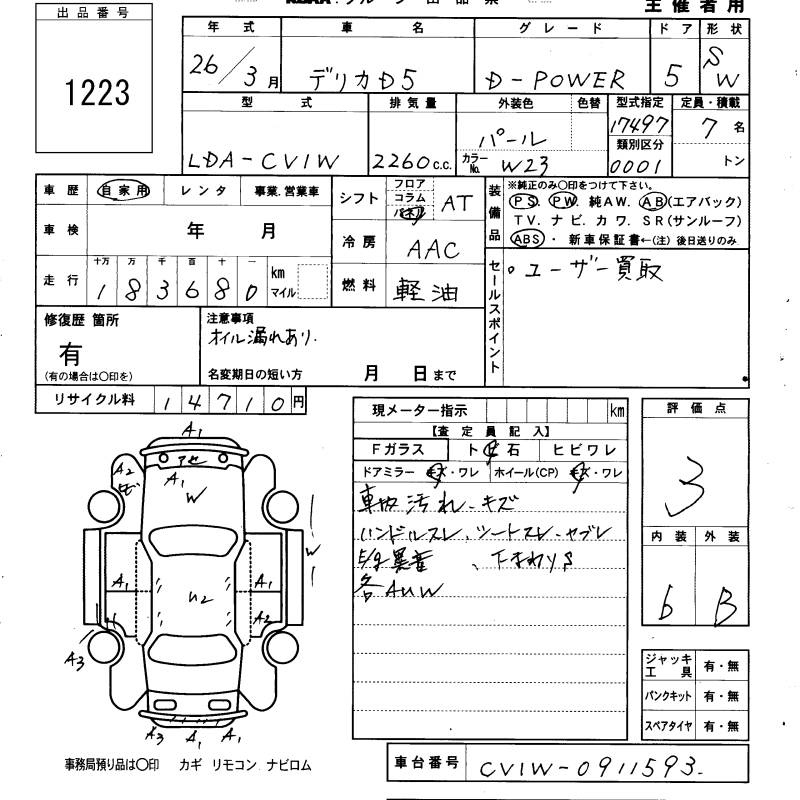 主催者用
出品番号
1223
年式 車名 グレード ドア 形状
26/3月 デリカD5 D-POWER 5 SW
型式 排気量 外装色 色替 型式指定 定員・積載
LDA-CV1W 2260c.c. パール 17497 7名
カラーNo. W23 類別区分 0001 トン
車歴 自家用 レンタ 事業.営業車
シフト フロア コラム パネル AT
装備品 ※純正のみ〇印をつけて下さい。
PS. PW. 純AW. AB(エアバック)
TV. ナビ. カワ. SR(サンルーフ)
ABS ・ 新車保証書←(注) 後日送りのみ
車検 年 月
冷房 AAC
走行 十万 万 千 百 十 一 km マイル
183680
燃料 軽油
セールスポイント 。ユーザー買取
修復歴 箇所
有
(有の場合は〇印を)
注意事項
オイル漏れあり.
名変期日の短い方 月 日まで
リサイクル料 14710円
現メーター指示 km
【査定員記入】
Fガラス ト 石 ヒビワレ
ドアミラー キズ・ワレ ホイール(CP) キズ・ワレ
車内汚れ・キズ
ハンドルスレ、シートスレ・ヤブレ
E/g異音 、下まわりS
各AUW
評価点
3
内装 外装
6 B
ジャッキ工具 有・無
パンクキット 有・無
スペアタイヤ 有・無
A1
アセ
A2
A1
W
W
A1
A1
U2
A2
A3
A3 A1 A1
事務局預り品は〇印 カギ リモコン ナビロム
車台番号 CV1W-0911593.